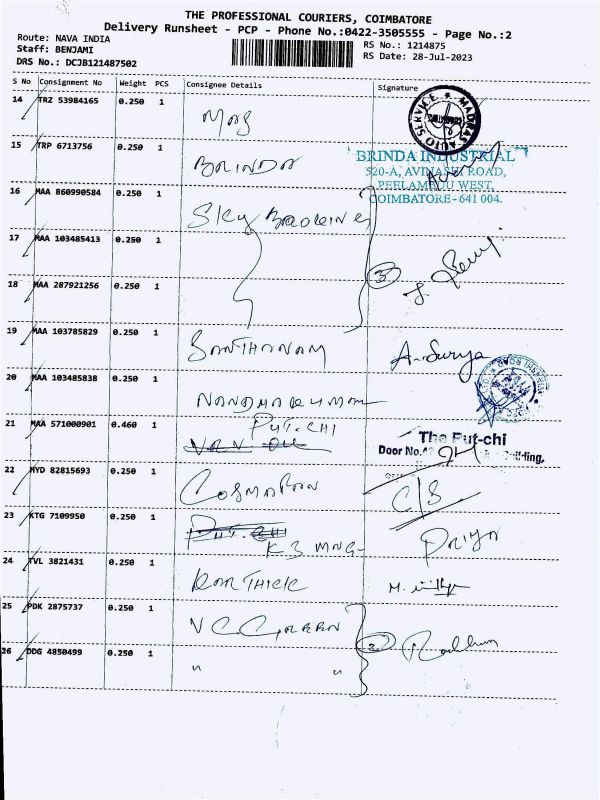 THE PROFESSIONAL COURIERS, COIMBATORE
Delivery Runsheet - PCP - Phone No.:0422-3505555 - Page No.:2
Route: NAVA INDIA
RS No.: 1214875
Staff: BENJAMI
RS Date: 28-Jul-2023
DRS No.: DCJB121487502
S No Consignment No Weight PCS Consignee Details Signature
14 TRZ 53984165 0.250 1 MAS
MADRAS AUTO SERVICE
15 TRP 6713756 0.250 1 BRINDA
BRINDA INDUSTRIAL
520-A, AVINASHI ROAD,
PEELAMEDU WEST,
COIMBATORE - 641 004.
16 MAA 860990584 0.250 1 Sky
17 MAA 103485413 0.250 1
3
18 MAA 287921256 0.250 1
19 MAA 103785829 0.250 1 SANTHANAM A. Surya
20 MAA 103485838 0.250 1 NANDHAKUMAR
21 MAA 571000901 0.460 1 PUT-CHI
The Put-chi
Door No.
22 HYD 82815693 0.250 1 C/S
23 KTG 7109950 0.250 1 PUT-CHI
K3 MNG Priya
24 TVL 3821431 0.250 1 KARTHICK
25 PDK 2875737 0.250 1 VC GREEN 2
26 DDG 4850499 0.250 1 " "